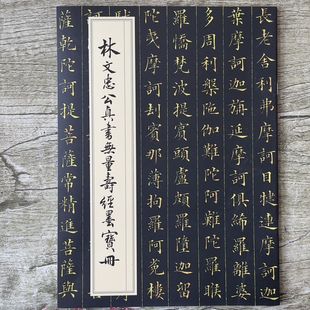 長老舍利弗摩訶目犍連摩訶迦
葉摩訶迦旃延摩訶俱絺羅離婆
多周利槃陁伽難陁阿難陁羅睺
羅憍梵波提賓頭盧頗羅墮迦留
陁夷摩訶劫賓那薄拘羅阿㝹樓
林文忠公真書無量壽經墨寶冊
薩乾陁訶提菩薩常精進菩薩與